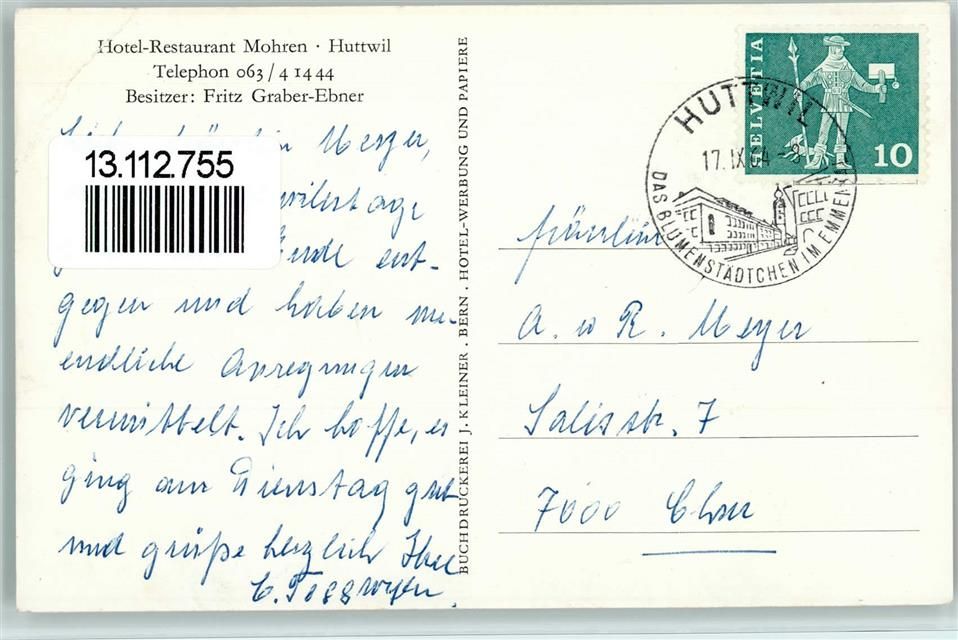 Hotel-Restaurant Mohren · Huttwil
Telephon 063/4 14 44
Besitzer: Fritz Graber-Ebner
13.112.755
Meyer,
ent-
gegen und haben un-
endliche Anregungen
vermittelt. Ich hoffe, es
ging am Dienstag gut
und grüße herzlich Ihre
BUCHDRUCKEREI J. KLEINER . BERN . HOTEL-WERBUNG UND PAPIERE
HELVETIA
10
HUTTWIL
17. IX 64 -8
DAS BLUMENSTÄDTCHEN IM EMMEN
Fräulein
A. u R. Meyer
Salisstr. 7
7000 Chur